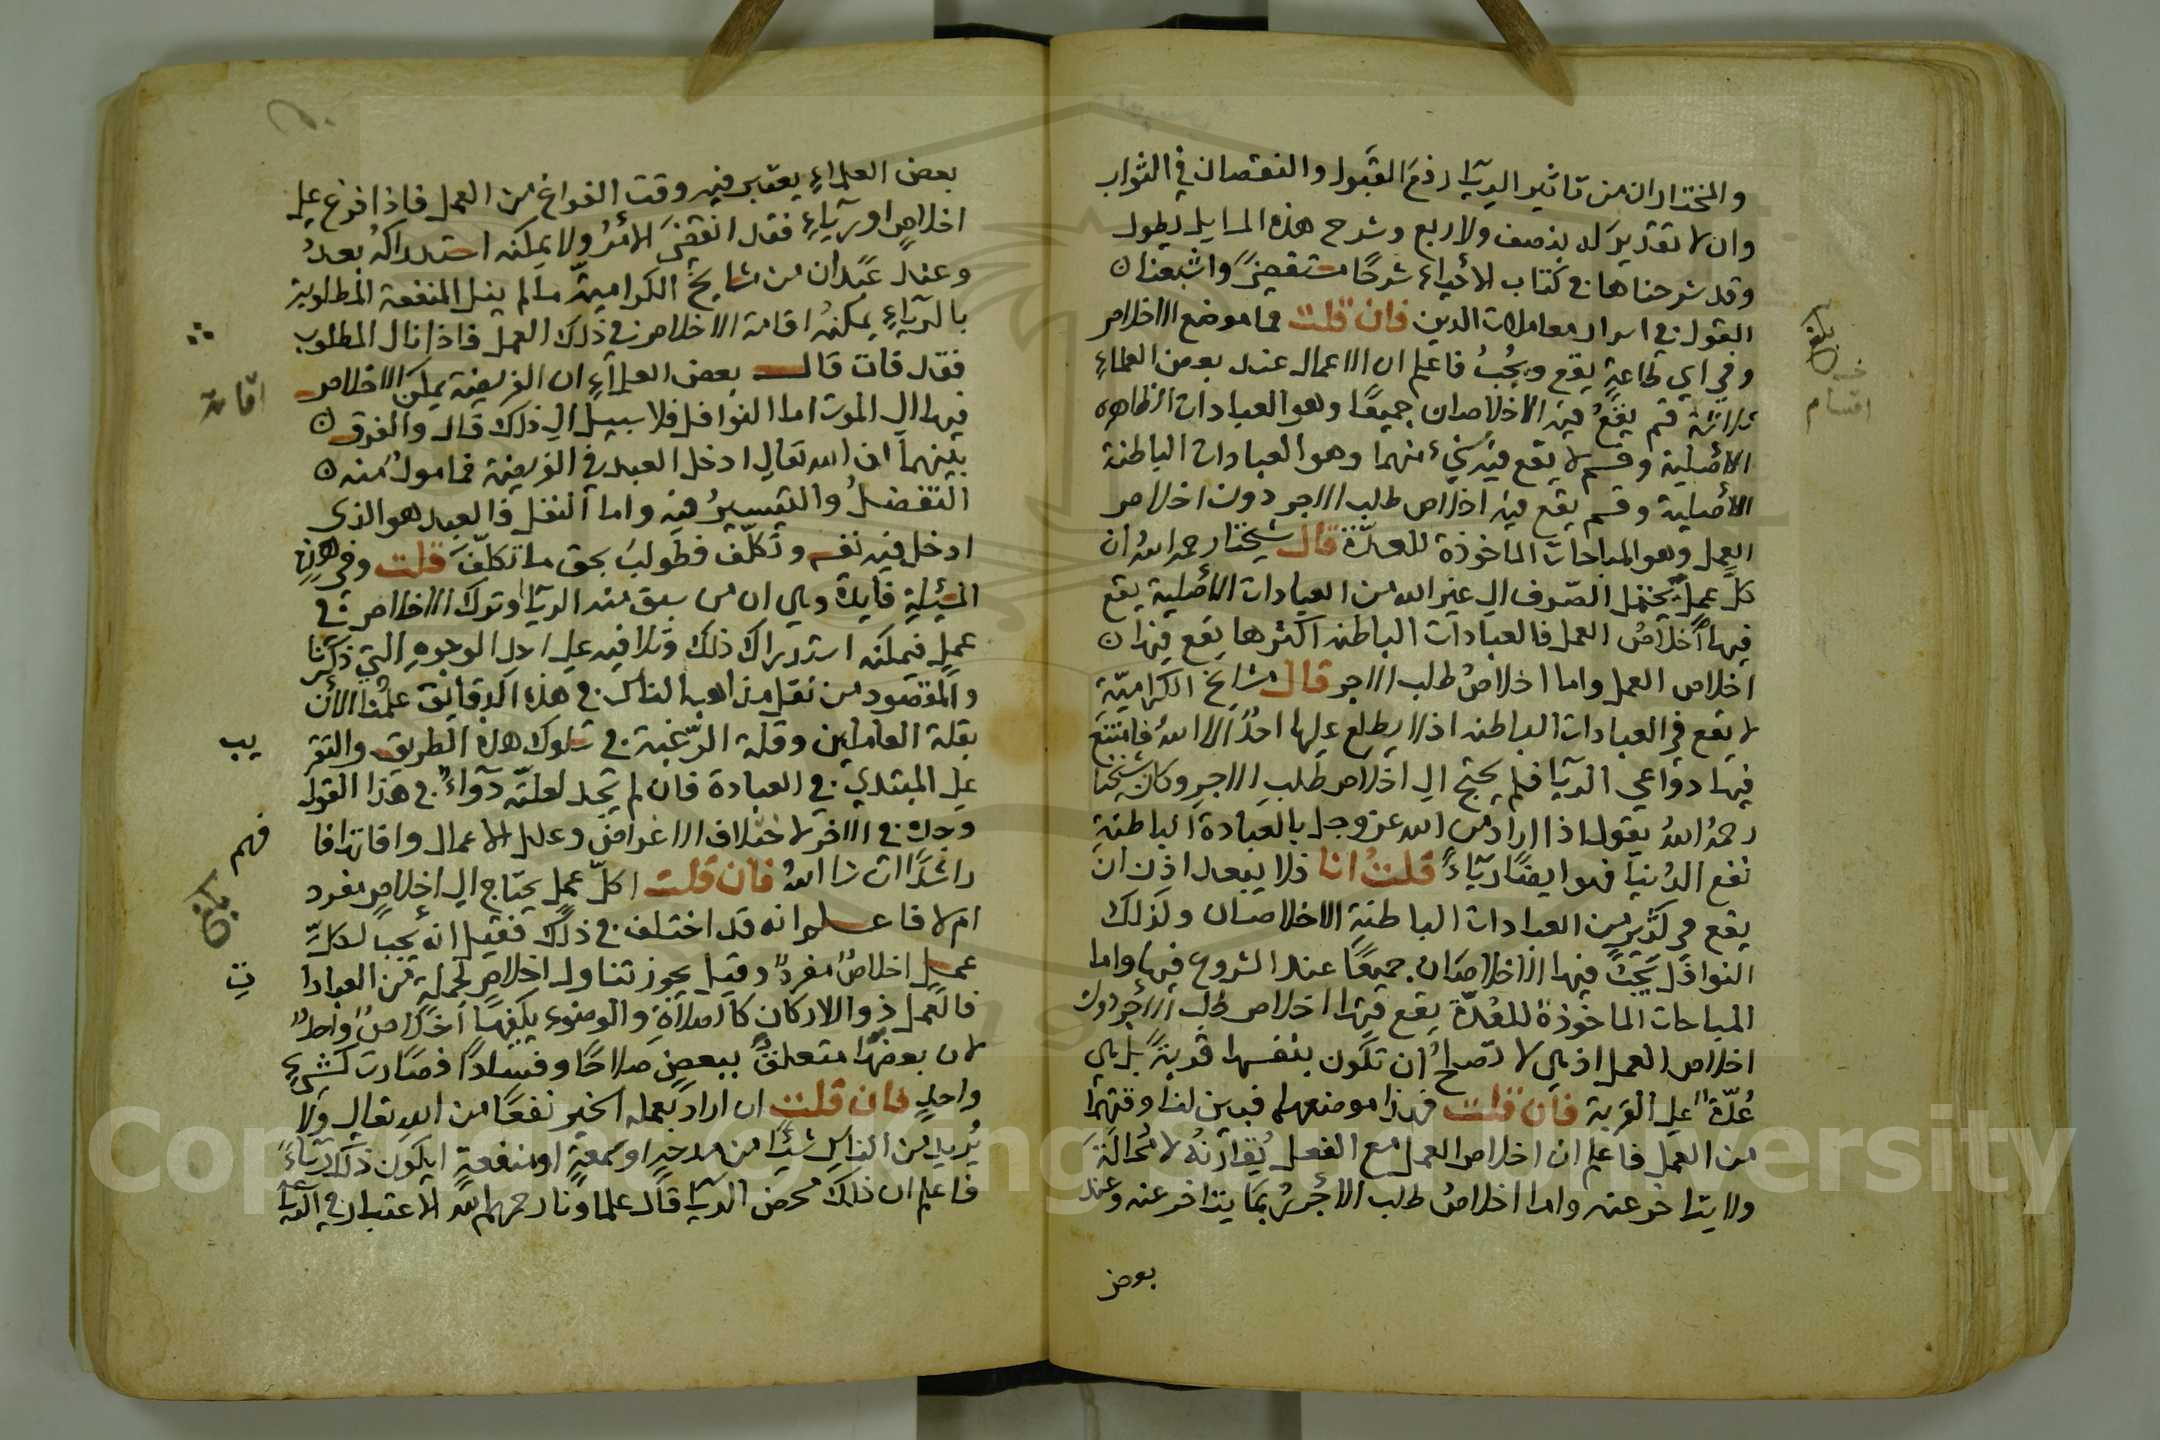 والمختار ان من تاثير الريا رفع القبول والنقصان في الثواب
وان لا تقدير له بنصف ولا ربع وشرح هذه المسايل يطول
وقد شرحناها في كتاب الاحياء شرحًا مستقصيً واشبعنا
القول في اسرار معاملات الدين فان قلت فما موضع الاخلاص
وفي اي طاعةٍ يقع ويجبُ فاعلم ان الاعمال عند بعض العلماءِ
ثلاثة قسم يقعُ فيه الاخلاصان جميعًا وهو العبادات الظاهره
الاصلية وقسم لا يقع فيه شيء منهما وهو العبادات الباطنة
الاصلية وقسم يقع فيه اخلاص طلب الاجر دون اخلاص
العمل وهو المباحات الماخوذة للعدّة قال شيخنا رحمه الله ان
كلّ عملٍ يحتمل الصرف الى غير الله من العبادات الاصلية يقع
فيها اخلاصُ العمل فالعبادات الباطنه اكثرها يقع فيها
اخلاص العمل واما اخلاصُ طلب الاجر قال مشايخ الكراميّة
لا يقع في العبادات الباطنه اذ لا يطلع عليها احدٌ الا اللهُ فامتنعَ
فيها دواعي الريا فلم يحتج الى اخلاص طلبِ الاجرِ وكان شيخنا
رحمهُ اللهُ يقول اذا اراد من الله عز وجل بالعبادة الباطنةِ
نفع الدُنيا فهو ايضًا رياءً قلتُ انا فلا يبعد اذن ان
يقع في كثيرٍ من العبادات الباطنةِ الاخلاصان وكذلك
النوافل يجب فيها الاخلاصان جميعًا عند الشروع فيها واما
المباحات الماخوذة للعُدّة يقع فيها اخلاص طلب الاجر دون
اخلاص العمل اذ هي لا تصلح ان تكون بنفسها قربةً بل هي
عُدّةٌ على القربة فان قلت فهذا موضعهما فبين لنا وقتهما
من العمل فاعلم ان اخلاص العمل مع الفعل يُقارنهُ لا محالةَ
ولا يتاخر عنه واما اخلاصُ طلب الاجر ربما يتاخر عنه وعند
بعض
بلغ
اقسام
بعض العلماءِ يعتبر فيه وقت الفراغ من العمل فاذا فرغ على
اخلاصٍ او رياءٍ فقد انقضىَ الامرُ ولا يمكنه استدراكهُ بعدُ
وعند عبدان من مشايخ الكراميةّ ما لم ينل المنفعة المطلوبة
بالرياءِ يمكنهُ اقامة الاخلاص في ذلك العمل فاذا نال المطلوب
فقد فات قال بعض العلماءِ ان الفريضة يمكن الاخلاص
اقامة
فيها الى الموت اما النوافل فلا سبيل الى ذلك قال والفرق
بينهما ان الله تعالى ادخل العبد في الفريضة فمامولٌ منه
التفضلُ والتيسيرُ فيه واما النفل فالعبد هو الذى
ادخل فيه نفسه وتكلّف فطولبَ بحق ما تكلّفَ قلت وفي هذهِ
المسئلةِ فايدة وهي ان من سبق منه الريا او ترك الاخلاص في
عملٍ فيمكنه استدراك ذلك وتلافيه على احد الوجوهِ التي ذكرنا
والمقصود من نقل مذاهب الناس في هذه الدقايق علمُنا الان
بقلة العاملين وقلة الرّغبة في سلوك هذه الطريق والتقر
يب
على المبتدي في العبادة فان لم تجد لعلتّه دوآءً في هذا القول
وجد في الاخر لاختلاف الاغراض وعلل الاعمال وافاتها فا
فهم
راشدًا ان شا اللهُ فان قلت اكلّ عمل يحتاج الى اخلاصٍ مفرد
بلغ
ام لا فاعلم انه قد اختلف في ذلك فقيل انه يجب لكلّ
عملٍ اخلاصٌ مفردٌ وقيل يجوز تناول اخلاصٍ لجملةٍ من العبادا
ت
فالعمل ذو الاركان كالصلاةِ والوضوءِ يكفيها اخلاصٌ واحدٌ
لان بعضها متعلقٌ ببعضٍ صلاحًا وفسادًا فصارت كشيءٍ
واحدٍ فان قلت ان اراد بعمله الخير نفعًا من الله تعالى ولا
يُريد من الناس شيًا من مدحٍ او سمعةٍ او منفعةٍ ايكون ذلك رياءً
فاعلم ان ذلك محض الريا قال علماونا رحمهم الله الاعتبار في الريا